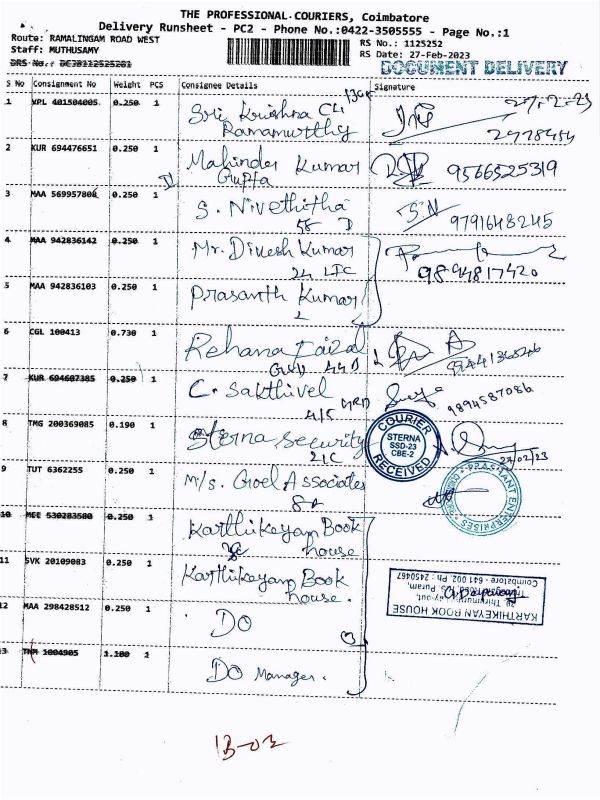 THE PROFESSIONAL COURIERS, Coimbatore
Delivery Runsheet - PC2 - Phone No.:0422-3505555 - Page No.:1
Route: RAMALINGAM ROAD WEST
RS No.: 1125252
Staff: MUTHUSAMY
RS Date: 27-Feb-2023
DOCUMENT DELIVERY
S No Consignment No Weight PCS Consignee Details Signature
1 VPL 401504005 0.250 1 Sri Krishna CL
Ramamurthy
27.2.23
2478454
2 KUR 694476651 0.250 1 Mahinder Kumar
Gupta
9566525319
3 MAA 569957808 0.250 1 S. Nivethitha
58 D
S N
9791648245
4 MAA 942836142 0.250 1 Mr. Divesh Kumar
9894817420
5 MAA 942836103 0.250 1 Prasanth Kumar
6 CGL 100413 0.730 1 Rehana Faizal
44D
7 KUR 694607385 0.250 1 C. Sakthivel
9894587086
8 TMG 200369085 0.190 1 Sterna Security
21C
COURIER
STERNA
SSD-23
CBE-2
RECEIVED
27/02/23
9 TUT 6362255 0.250 1 M/s. Goel Associates
PRASHANT ENTERPRISES
10 MEE 530203580 0.250 1 Karthikeyan Book
house
11 SVK 20109083 0.250 1 Karthikeyan Book
house.
KARTHIKEYAN BOOK HOUSE
Coimbatore - 641 002. Ph : 2450467
12 MAA 298428512 0.250 1 DO
3
13 TNM 1004905 1.100 1 DO Manager.
13-03